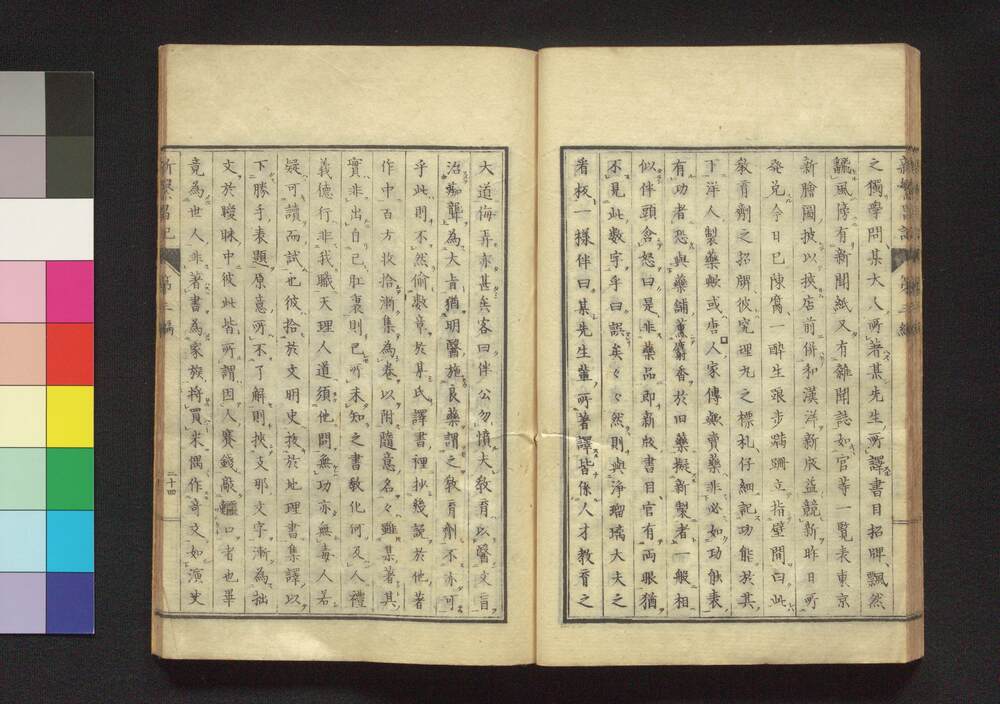 之獨學問、某大人所著某先生所譯書目招牌、飄然
飜風傍有新聞紙又有雜聞誌如官等一覽表東京
新繪圖披以挾店前併和漢洋新版益競新昨日所
發兌今日已陳腐一醉生踉步蹣跚立指壁間曰此
教育劑之招牌彼究理丸之標札仔細記功能於其
下洋人製藥歟或唐人家傳歟賣藥非必如功能表
有功者恐與藥鋪薰麝香於旧藥擬新製者一般相
似伴頭含怒曰是非藥品即新版書目官有両眼猶
不見此數字乎曰誤矣々々然則與淨瑠璃大夫之
看板一樣伴曰某先生輩所著譯皆係人才教育之
大道侮弄亦甚矣客曰伴公勿憤夫教育以醫文盲
治痴聾為大旨猶明醫施良藥謂之教育劑不亦可
乎此則不然偷數章於某氏譯書裡抄幾說於他著
作中百方拾漸集為卷以附隨意名々雖某著其
實非出自己肚裏則已所未知之書教化何及人禮
義德行非我職天理人道須他問無功亦無毒人若
疑可讀而試也彼拾於文明史抜於地理書集譯以
下勝手表題原意所不了解則挾支那文字漸為拙
文於曖昧中彼此皆所謂因人賽錢敲鰐口者也畢
竟為世人非著書為家族將買米偶作奇文如演史
新繁昌記
第二編
二十四